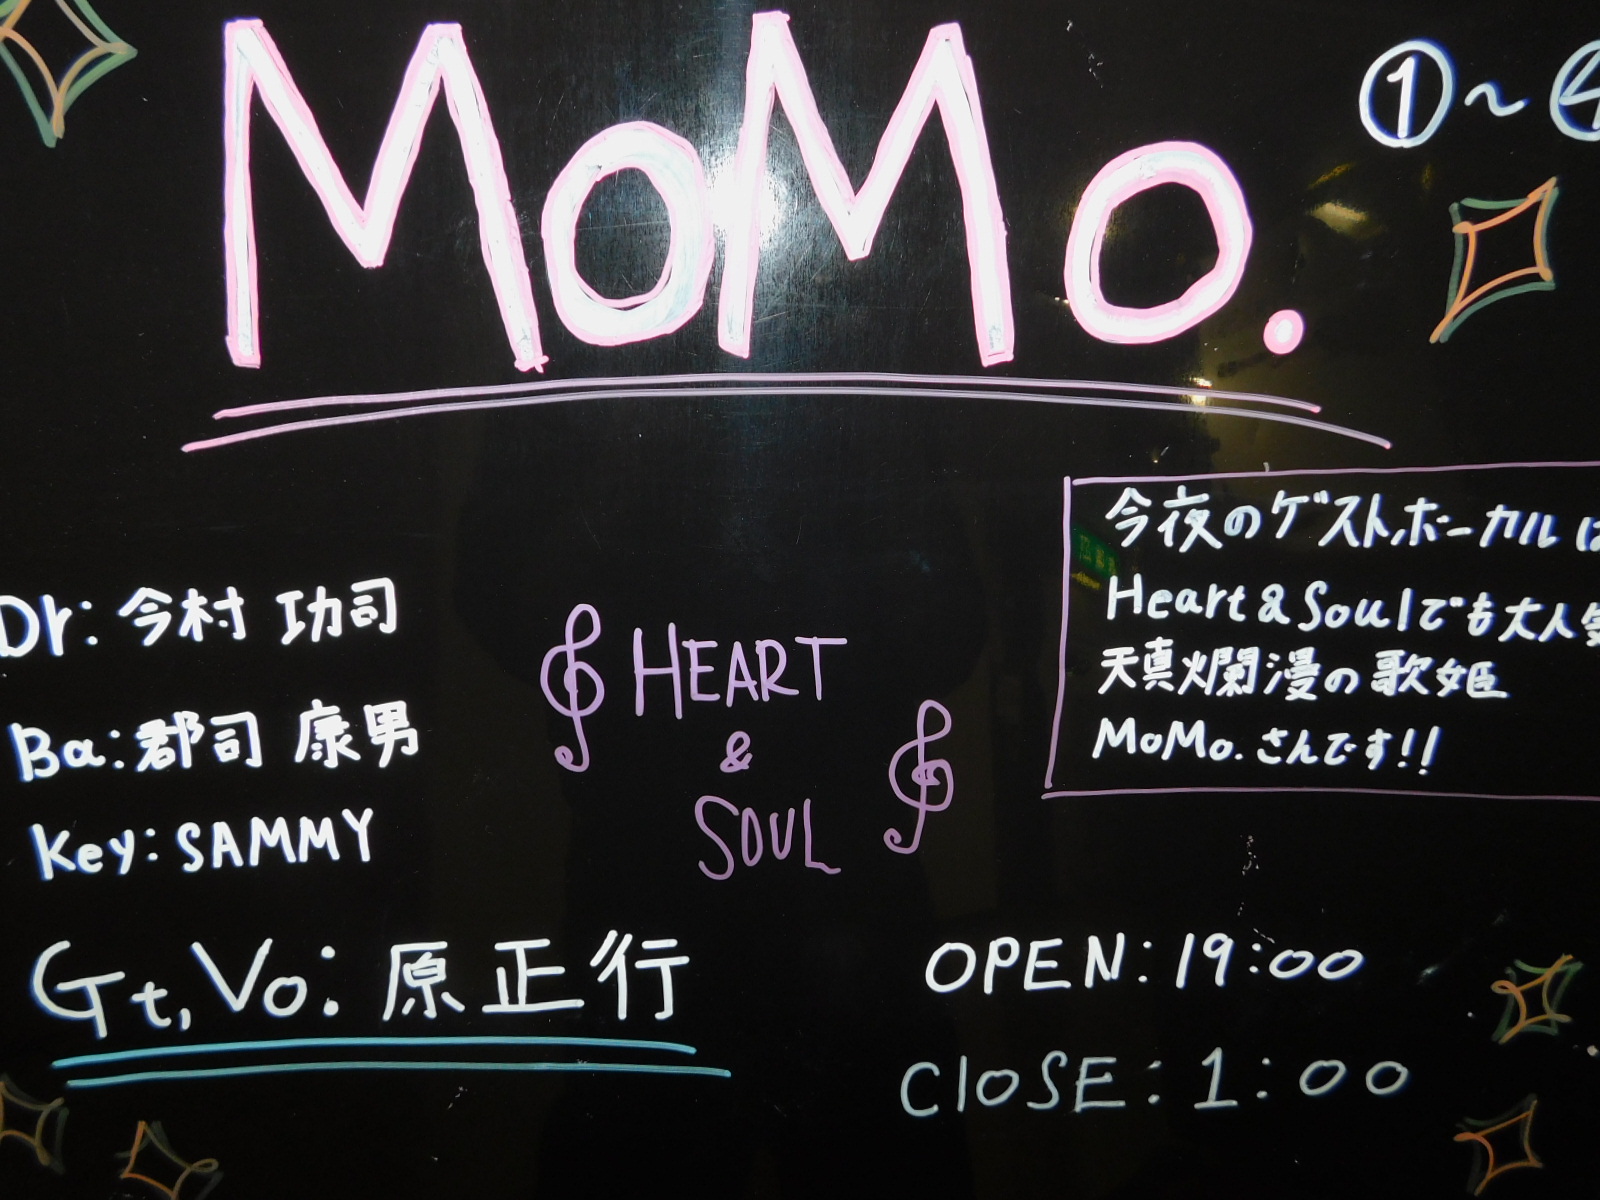 MoMo.
①~④
今夜のゲストボーカルは
Heart&Soulでも大人気
天真爛漫の歌姫
MoMo.さんです!!
Dr:今村 功司
Ba:郡司 康男
Key:SAMMY
Gt,Vo:原正行
HEART
&
SOUL
OPEN:19:00
CLOSE:1:00